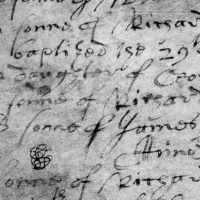 sonne of Richard
baptised the 29th
daughter of Geor
sonne of Richard
sonne of James
sonne of Richard